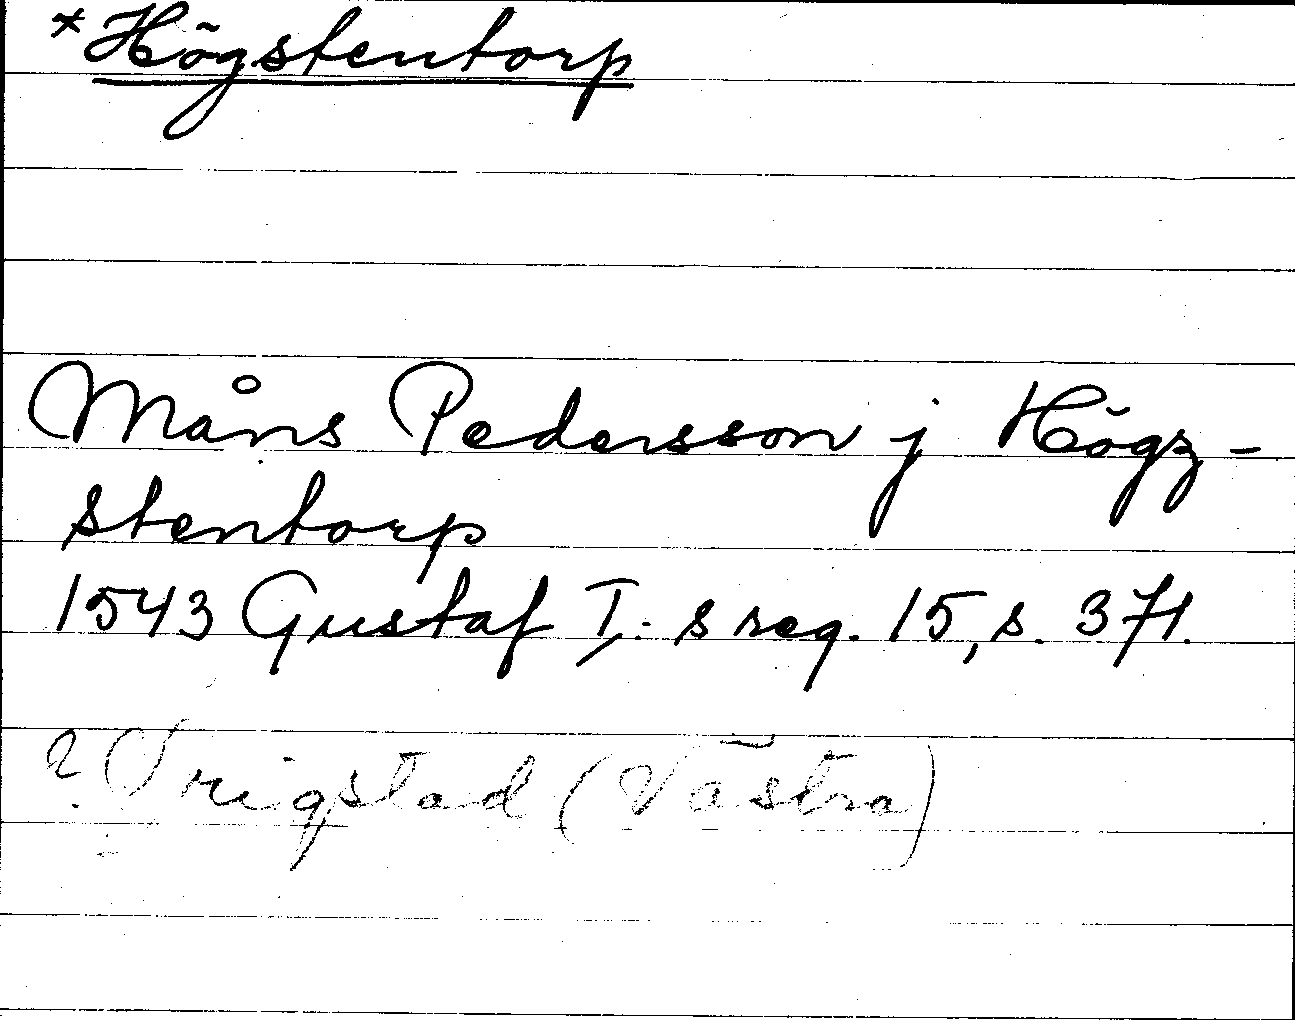 *Högstentorp
Måns Pedersson j Högz-
stentorp
1543 Gustaf I:s reg. 15, s. 371.
? Vrigstad (Västra)